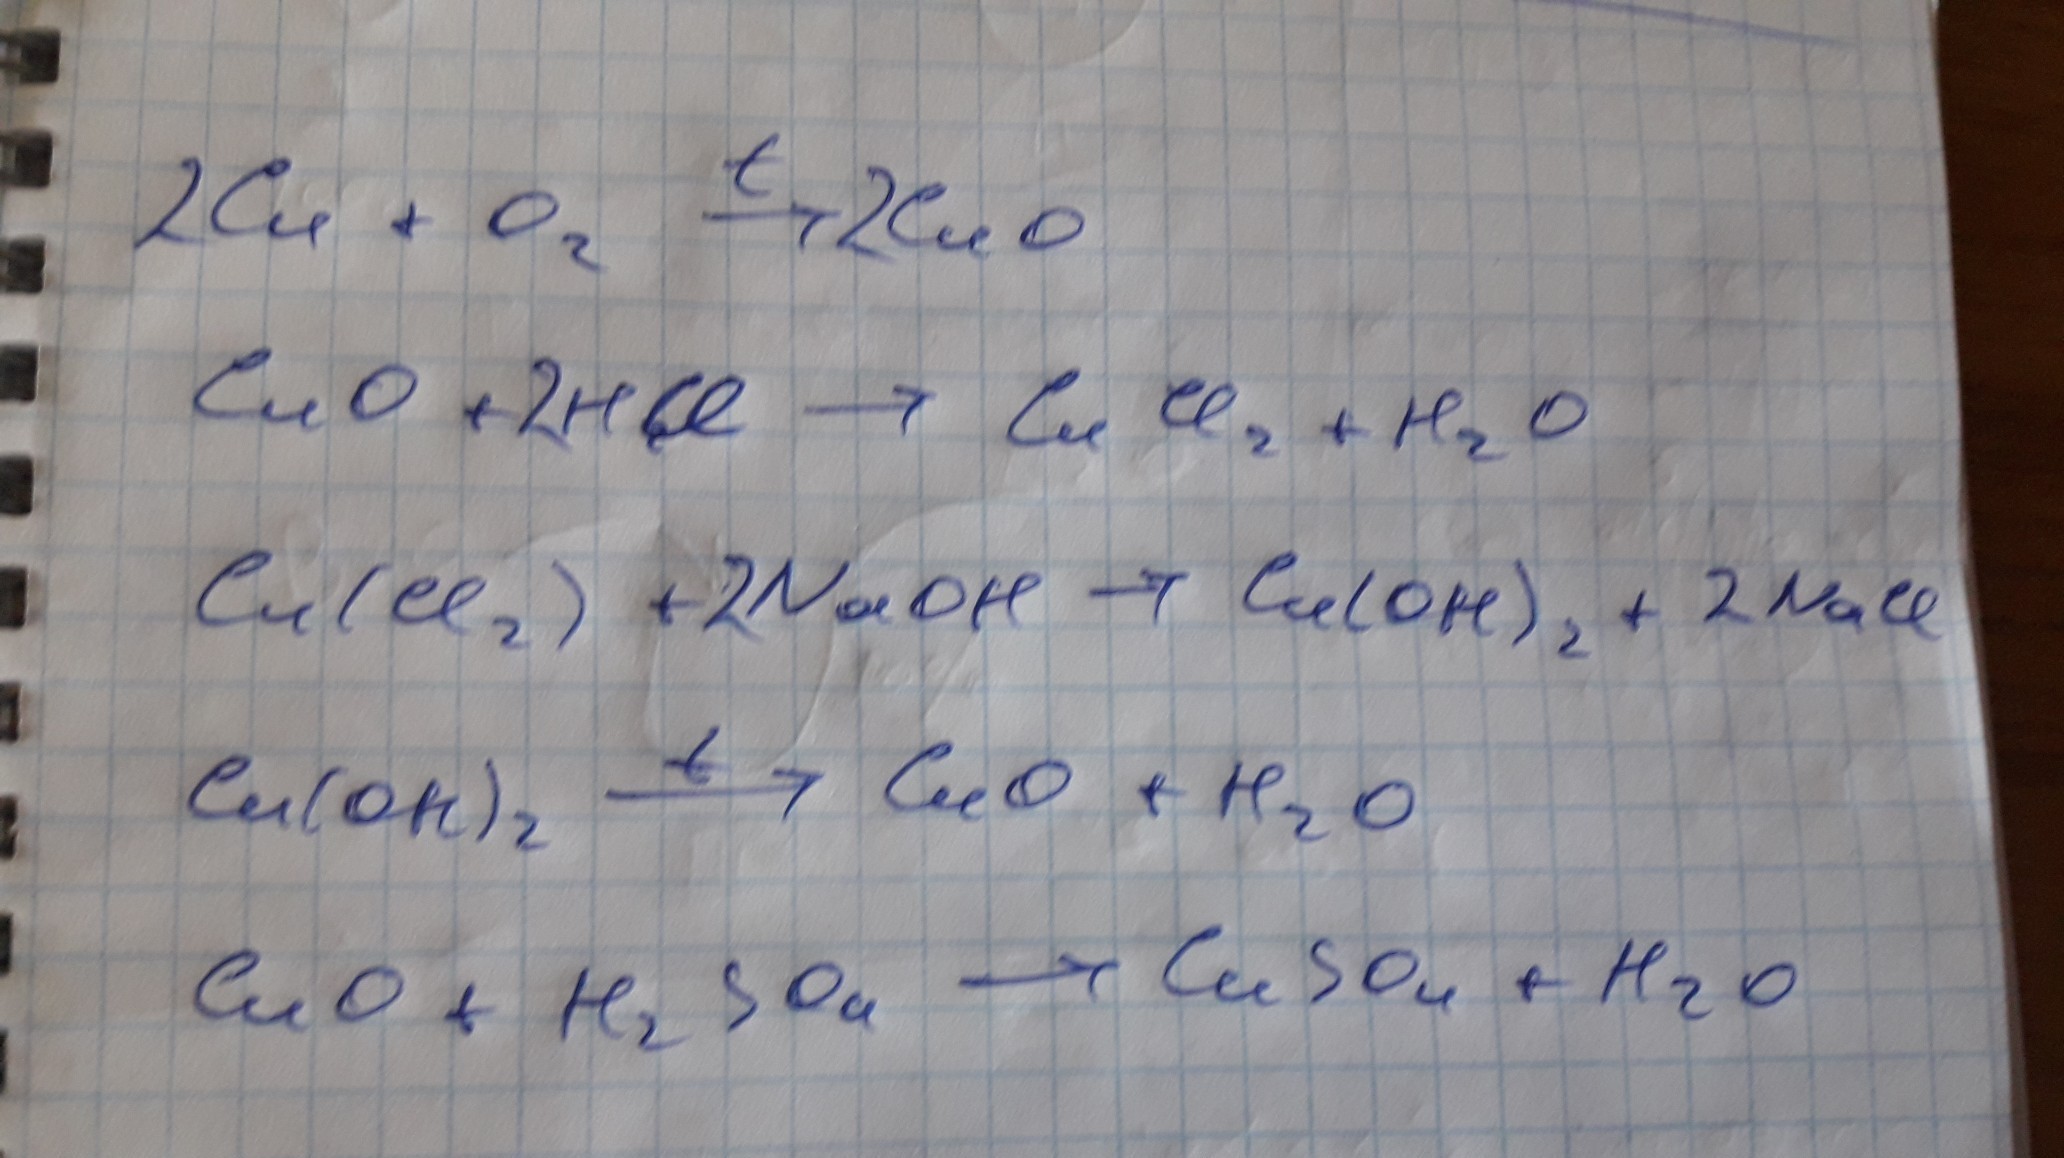 2Cu + O₂ →ᵗ 2CuO
CuO + 2HCl → CuCl₂ + H₂O
Cu(Cl₂) + 2NaOH → Cu(OH)₂ + 2NaCl
Cu(OH)₂ →ᵗ CuO + H₂O
CuO + H₂SO₄ → CuSO₄ + H₂O